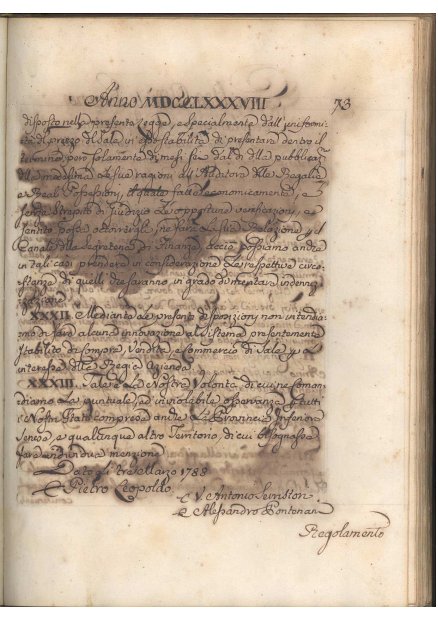 Anno MDCCLXXXVIII 73
disposto nella presente Legge, e specialmente dall' uniformi-
tà di prezzo del Sale, in essi stabilità di presentare dentro il
termine però solamente di mesi sei dal dì della pubblicaz.
della medesima le sue ragioni all' Auditore delle Regalie
e Reali Possessioni, il quale fatte economicamente, e
senza strepito di Giudizio le opportune verificazioni, e
sentito
Canale della Segreteria di Finanze, acciò possiamo anche
in tali casi prendere in considerazione le respettive circo-
stanze di quelli che saranno in grado di meritare indenniz-
zazione
XXXII. Mediante le presenti disposizioni non intendia-
mo di fare alcuna innovazione al Sistema presentemente
stabilito di compra, Vendita, e Commercio di Sale
interesse della Regia Azienda
XXXIII. Tale è la Nostra Volontà di cui ne coman-
diamo la puntuale, ed inviolabile osservanza tutti
i Nostri Stati compresa anche la Provincia Inferiore
Senese, e qualunque altro Territorio, di cui bisognasse
fare individua menzione
Dato li tre Marzo 1788
Pietro Leopoldo
V. Antonio Serristori
Alessandro Pontenani
Regolamento